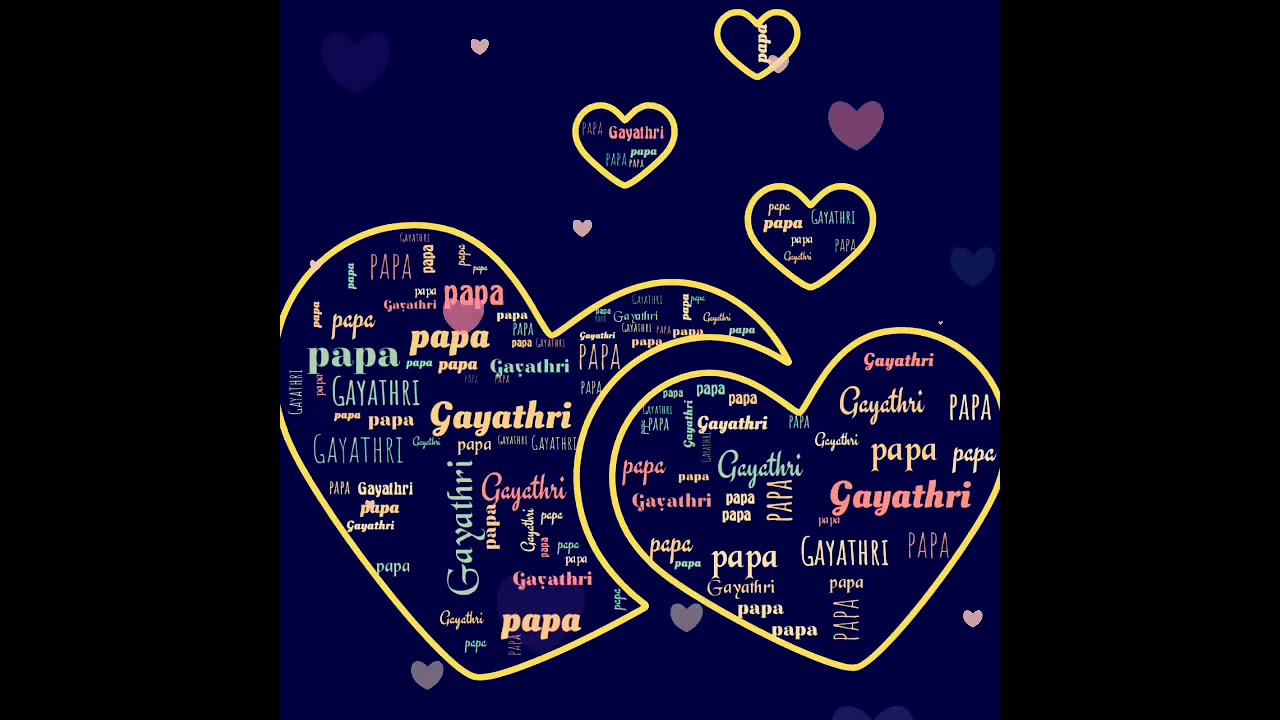 papa
PAPA Gayathri
papa
PAPA PAPA
papa
papa GAYATHRI
papa PAPA
Gayathri
GAYATHRI
papa papa
PAPA papa
papa papa
Gayathri papa
papa papa papa
papa papa PAPA
papa papa GAYATHRI
papa papa papa Gayathri
PAPA PAPA
GAYATHRI papa GAYATHRI
papa papa Gayathri
GAYATHRI Gayathri papa GAYATHRI GAYATHRI
PAPA Gayathri Gayathri Gayathri
papa papa
Gayathri Gayathri papa
papa papa papa
papa Gayathri
Gayathri papa papa
papa PAPA
GAYATHRI papa papa
papa Gayathri Gayathri
GAYATHRI PAPA papa papa
Gayathri papa
PAPA
PAPA
Gayathri
papa papa papa
Gayathri PAPA
GAYATHRI
PAPA Gayathri PAPA
papa Gayathri GAYATHRI
Gayathri papa papa
papa papa Gayathri
Gayathri papa PAPA Gayathri
papa papa
papa GAYATHRI PAPA
papa papa
Gayathri papa
papa PAPA
papa